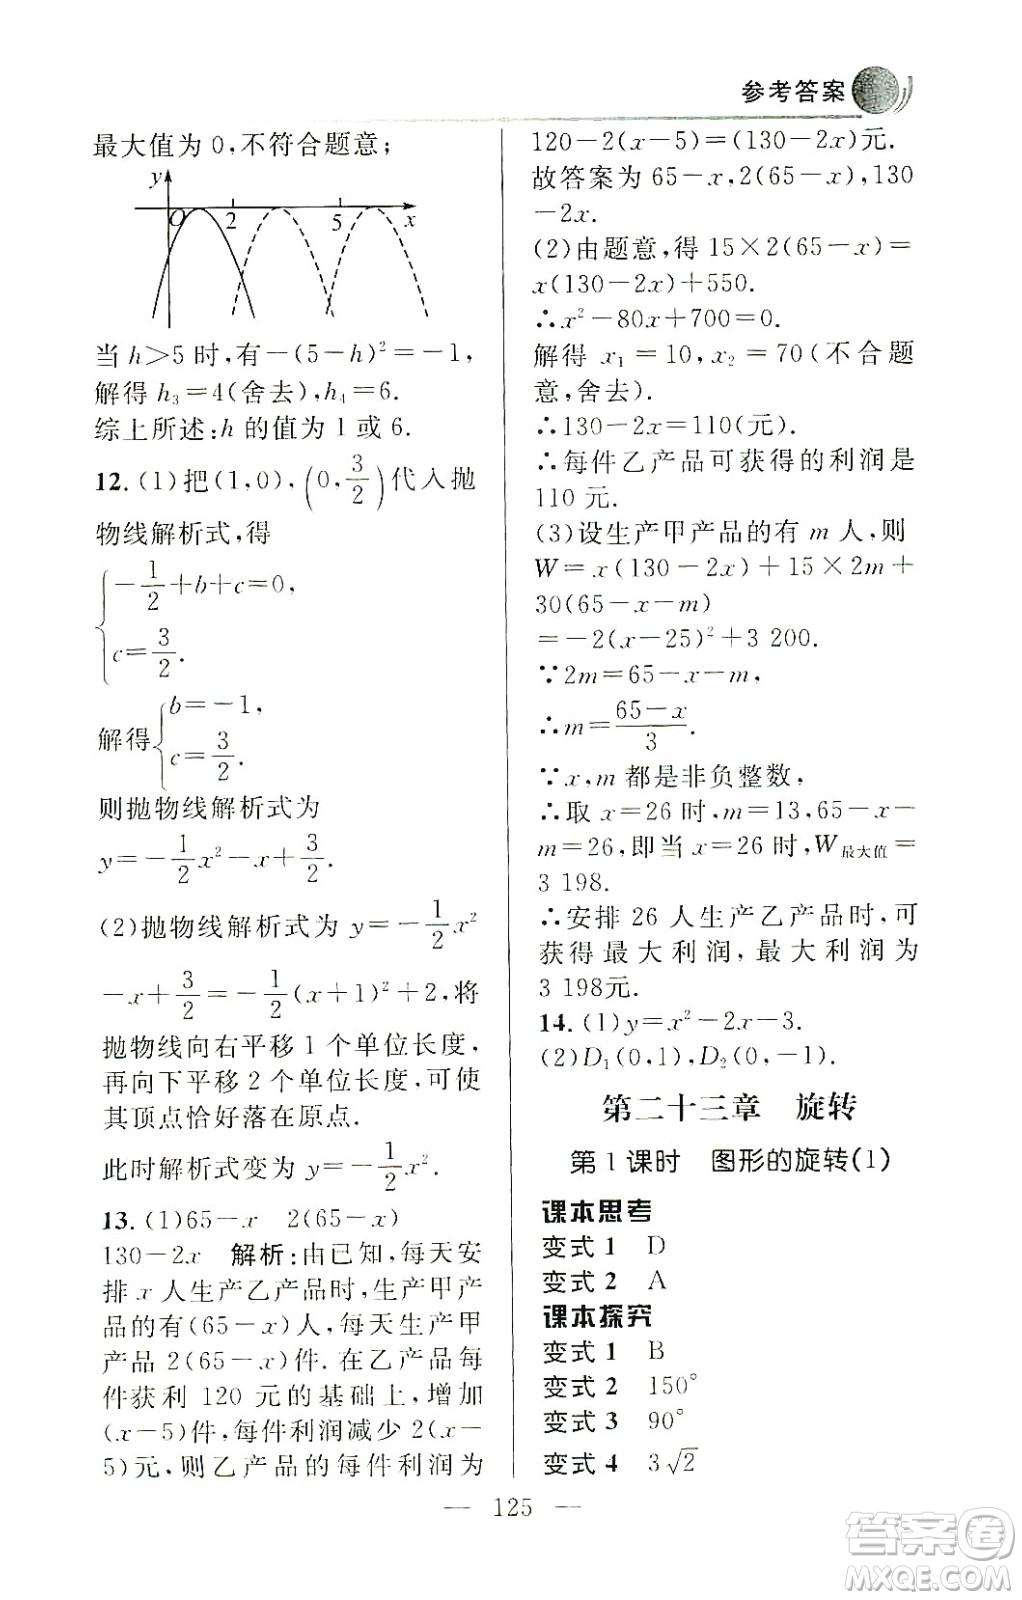 参考答案
最大值为 0,不符合题意;
y
O 2 5 x
当 h>5 时,有-(5-h)²=-1,
解得 h₃=4(舍去),h₄=6.
综上所述:h 的值为 1 或 6.
12. (1)把(1,0),(0,3/2)代入抛
物线解析式,得
{-1/2+b+c=0,
c=3/2.
解得{b=-1,
c=3/2.
则抛物线解析式为
y=-1/2x²-x+3/2.
(2)抛物线解析式为 y=-1/2x²
-x+3/2=-1/2(x+1)²+2,将
抛物线向右平移 1 个单位长度,
再向下平移 2 个单位长度,可使
其顶点恰好落在原点.
此时解析式变为 y=-1/2x².
13. (1)65-x 2(65-x)
130-2x 解析:由已知,每天安
排 x 人生产乙产品时,生产甲产
品的有(65-x)人,每天生产甲
产品 2(65-x)件. 在乙产品每
件获利 120 元的基础上,增加
(x-5)件,每件利润减少 2(x-
5)元,则乙产品的每件利润为
120-2(x-5)=(130-2x)元.
故答案为 65-x,2(65-x),130
-2x.
(2)由题意,得 15×2(65-x)=
x(130-2x)+550.
∴x²-80x+700=0.
解得 x₁=10,x₂=70(不合题
意,舍去).
∴130-2x=110(元).
∴每件乙产品可获得的利润是
110 元.
(3)设生产甲产品的有 m 人,则
W=x(130-2x)+15×2m+
30(65-x-m)
=-2(x-25)²+3 200.
∵2m=65-x-m,
∴m=(65-x)/3.
∵x,m 都是非负整数,
∴取 x=26 时,m=13,65-x-
m=26,即当 x=26 时,W最大值=
3 198.
∴安排 26 人生产乙产品时,可
获得最大利润,最大利润为
3 198元.
14. (1)y=x²-2x-3.
(2)D₁(0,1),D₂(0,-1).
第二十三章 旋转
第 1 课时 图形的旋转(1)
课本思考
变式 1 D
变式 2 A
课本探究
变式 1 B
变式 2 150°
变式 3 90°
变式 4 3√2
— 125 —
答案卷
MXQE.COM